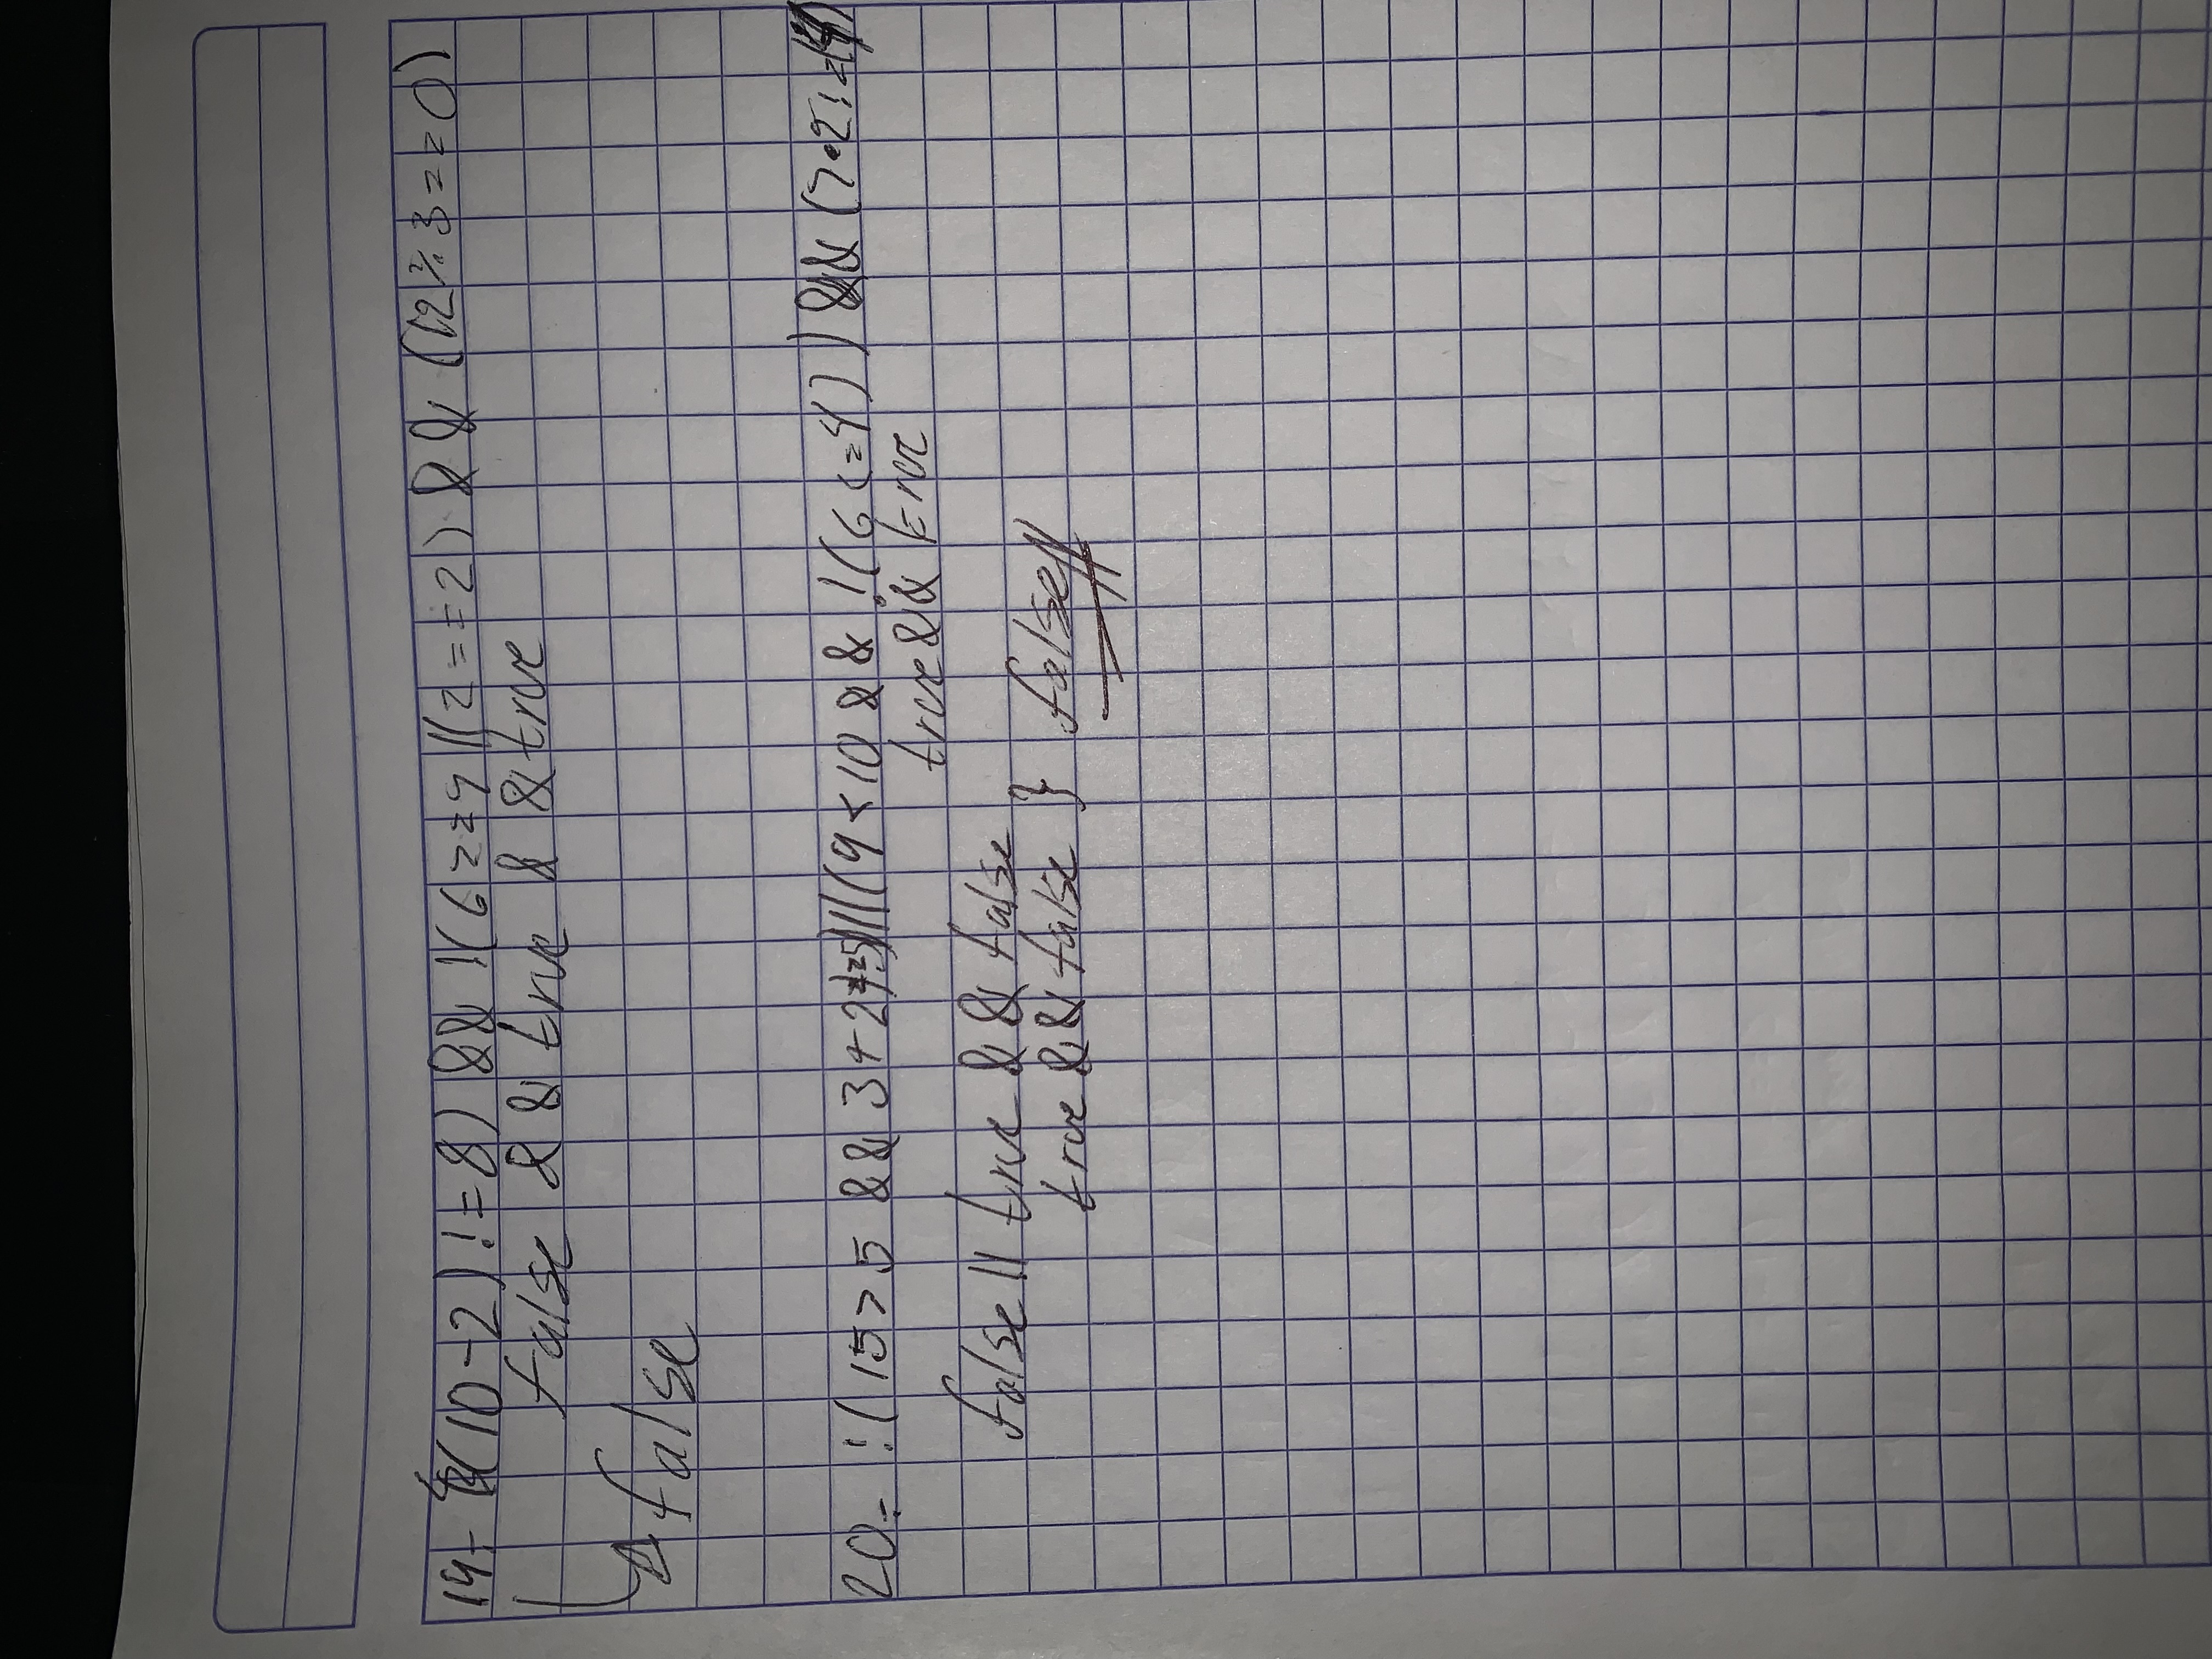 19- ((10-2) != 8) && !(6>=9 || 2==2) && (12%3==0)
false && true && true
false
20- !(15>5 && 3+2==5) || (9<10 && !(6<=4)) && (7*2!=14)
true && true
false || true && false
true && false } false //